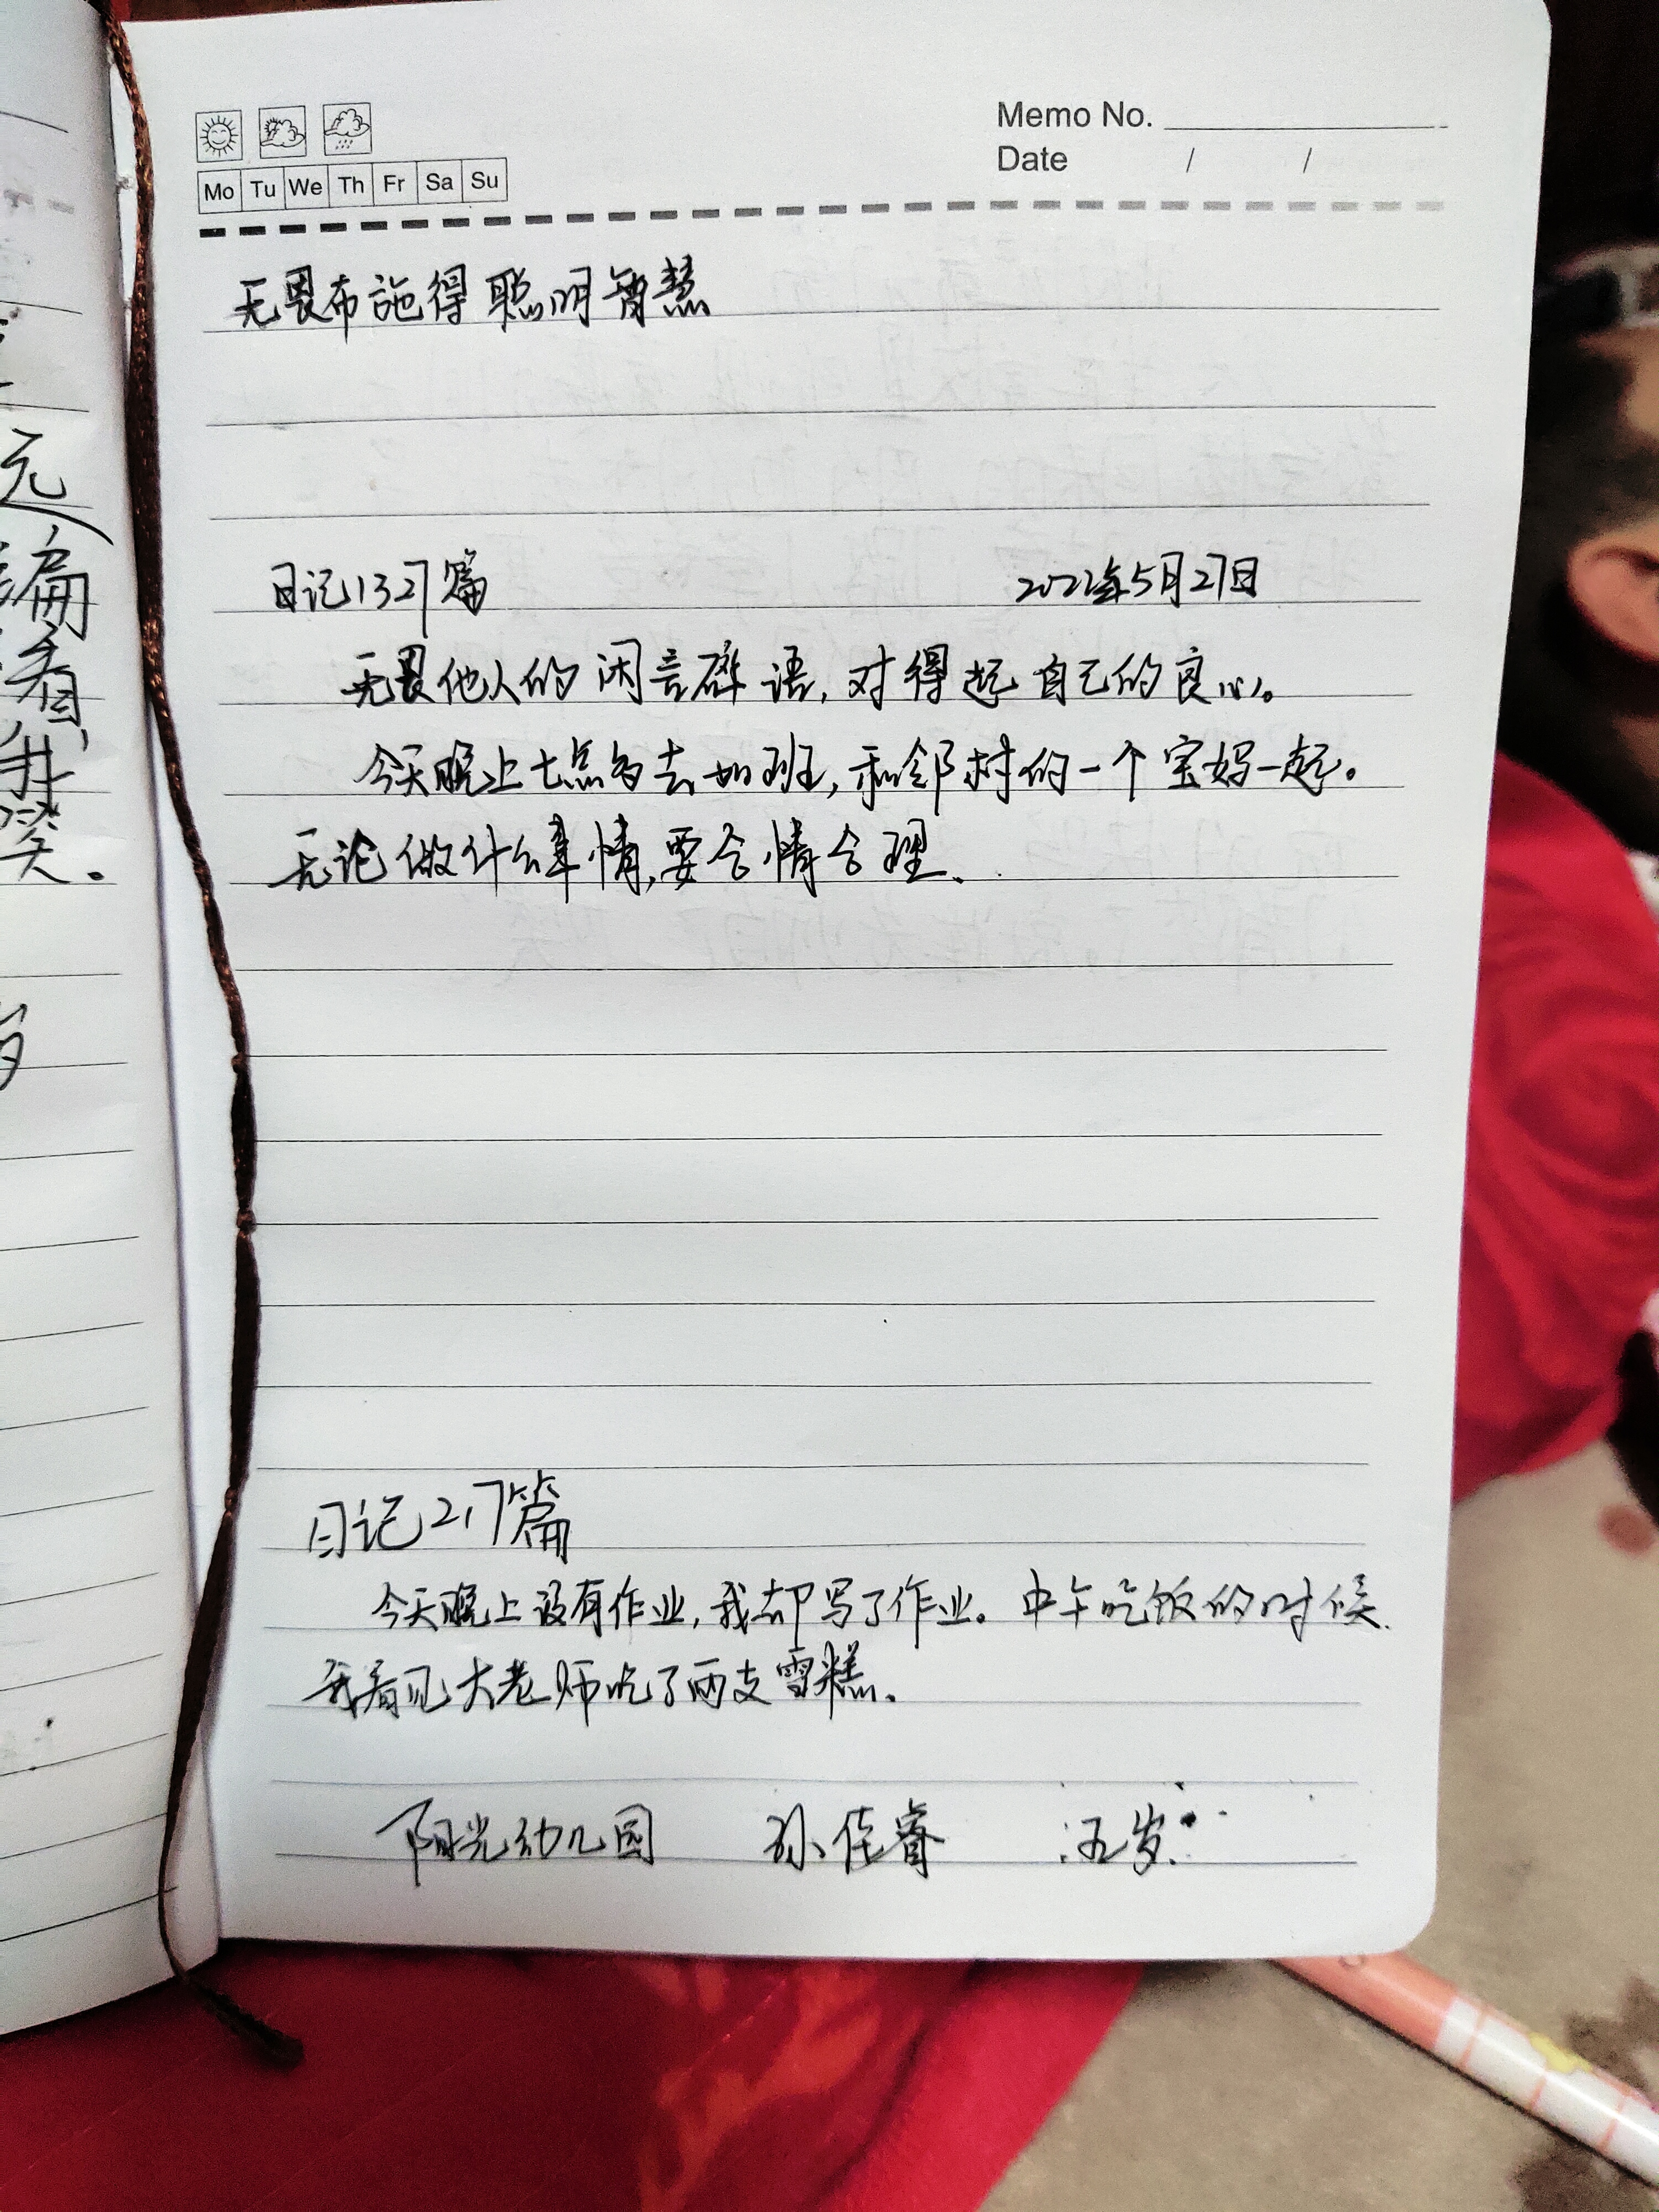 Memo No.
Date / /
Mo Tu We Th Fr Sa Su
无畏布施得聪明智慧
日记1327篇 2022年5月27日
无畏他人的闲言碎语,对得起自己的良心。
今天晚上七点多去加班,和邻村的一个宝妈一起。
无论做什么事情,要合情合理、
日记217篇
今天晚上没有作业,我却写了作业。中午吃饭的时候
我看见大老师吃了两支雪糕。
阳光幼儿园 孙佳睿 五岁
元
骗
看
我
笑。